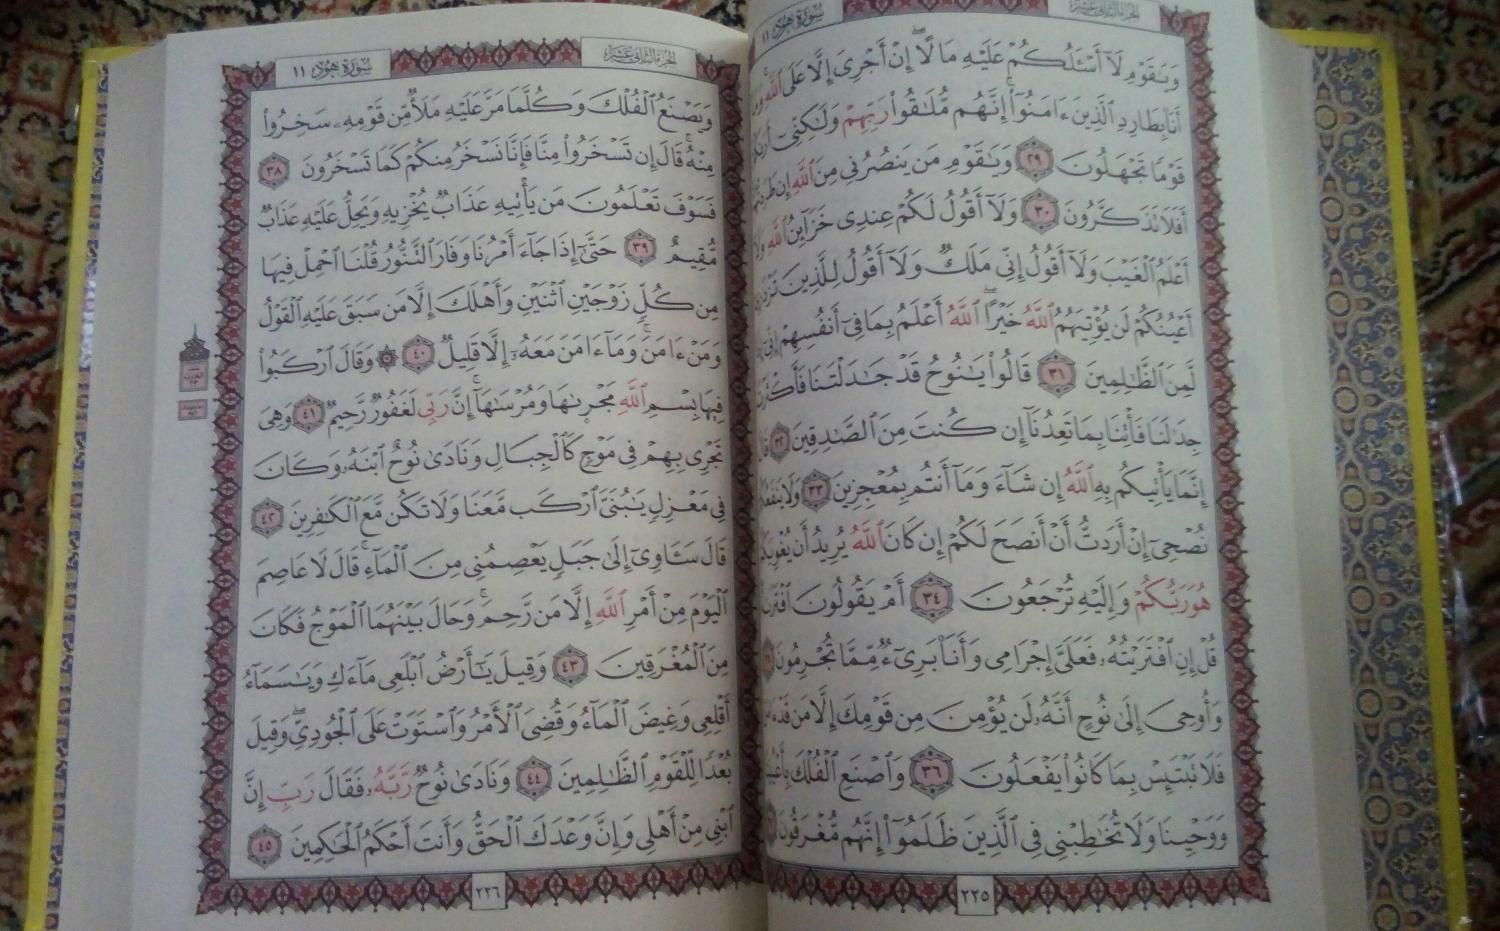 الجزء الثاني عشر
سورة هود ١١
وَيَٰقَوْمِ لَآ أَسْـَٔلُكُمْ عَلَيْهِ مَالًا ۖ إِنْ أَجْرِىَ إِلَّا عَلَى ٱللَّهِ ۚ
أَنَا۠ بِطَارِدِ ٱلَّذِينَ ءَامَنُوٓا۟ ۚ إِنَّهُم مُّلَٰقُوا۟ رَبِّهِمْ وَلَٰكِنِّىٓ
قَوْمًا تَجْهَلُونَ ٢٩ وَيَٰقَوْمِ مَن يَنصُرُنِى مِنَ ٱللَّهِ إِن
أَفَلَا تَذَكَّرُونَ ٣٠ وَلَآ أَقُولُ لَكُمْ عِندِى خَزَآئِنُ ٱللَّهِ
أَعْلَمُ ٱلْغَيْبَ وَلَآ أَقُولُ إِنِّى مَلَكٌ وَلَآ أَقُولُ لِلَّذِينَ
أَعْيُنُكُمْ لَن يُؤْتِيَهُمُ ٱللَّهُ خَيْرًا ۖ ٱللَّهُ أَعْلَمُ بِمَا فِىٓ أَنفُسِهِمْ
لَّمِنَ ٱلظَّٰلِمِينَ ٣١ قَالُوا۟ يَٰنُوحُ قَدْ جَٰدَلْتَنَا
جِدَٰلَنَا فَأْتِنَا بِمَا تَعِدُنَآ إِن كُنتَ مِنَ ٱلصَّٰدِقِينَ ٣٢
إِنَّمَا يَأْتِيكُم بِهِ ٱللَّهُ إِن شَآءَ وَمَآ أَنتُم بِمُعْجِزِينَ ٣٣ وَلَا
نُصْحِىٓ إِنْ أَرَدتُّ أَنْ أَنصَحَ لَكُمْ إِن كَانَ ٱللَّهُ يُرِيدُ أَن
هُوَ رَبُّكُمْ وَإِلَيْهِ تُرْجَعُونَ ٣٤ أَمْ يَقُولُونَ
قُلْ إِنِ ٱفْتَرَيْتُهُۥ فَعَلَىَّ إِجْرَامِى وَأَنَا۠ بَرِىٓءٌ مِّمَّا تُجْرِمُونَ
وَأُوحِىَ إِلَىٰ نُوحٍ أَنَّهُۥ لَن يُؤْمِنَ مِن قَوْمِكَ إِلَّا مَن
فَلَا تَبْتَئِسْ بِمَا كَانُوا۟ يَفْعَلُونَ ٣٦ وَٱصْنَعِ ٱلْفُلْكَ
وَوَحْيِنَا وَلَا تُخَٰطِبْنِى فِى ٱلَّذِينَ ظَلَمُوٓا۟ ۚ إِنَّهُم مُّغْرَقُونَ
٢٢٥
الجزء الثاني عشر
سورة هود ١١
وَيَصْنَعُ ٱلْفُلْكَ وَكُلَّمَا مَرَّ عَلَيْهِ مَلَأٌ مِّن قَوْمِهِۦ سَخِرُوا۟
مِنْهُ ۚ قَالَ إِن تَسْخَرُوا۟ مِنَّا فَإِنَّا نَسْخَرُ مِنكُمْ كَمَا تَسْخَرُونَ ٣٨
فَسَوْفَ تَعْلَمُونَ مَن يَأْتِيهِ عَذَابٌ يُخْزِيهِ وَيَحِلُّ عَلَيْهِ عَذَابٌ
مُّقِيمٌ ٣٩ حَتَّىٰٓ إِذَا جَآءَ أَمْرُنَا وَفَارَ ٱلتَّنُّورُ قُلْنَا ٱحْمِلْ فِيهَا
مِن كُلٍّ زَوْجَيْنِ ٱثْنَيْنِ وَأَهْلَكَ إِلَّا مَن سَبَقَ عَلَيْهِ ٱلْقَوْلُ
وَمَنْ ءَامَنَ ۚ وَمَآ ءَامَنَ مَعَهُۥٓ إِلَّا قَلِيلٌ ٤٠ ۞ وَقَالَ ٱرْكَبُوا۟
فِيهَا بِسْمِ ٱللَّهِ مَجْر۪ىٰهَا وَمُرْسَىٰهَآ ۚ إِنَّ رَبِّى لَغَفُورٌ رَّحِيمٌ ٤١ وَهِىَ
تَجْرِى بِهِمْ فِى مَوْجٍ كَٱلْجِبَالِ وَنَادَىٰ نُوحٌ ٱبْنَهُۥ وَكَانَ
فِى مَعْزِلٍ يَٰبُنَىَّ ٱرْكَب مَّعَنَا وَلَا تَكُن مَّعَ ٱلْكَٰفِرِينَ ٤٢
قَالَ سَـَٔاوِىٓ إِلَىٰ جَبَلٍ يَعْصِمُنِى مِنَ ٱلْمَآءِ ۚ قَالَ لَا عَاصِمَ
ٱلْيَوْمَ مِنْ أَمْرِ ٱللَّهِ إِلَّا مَن رَّحِمَ ۚ وَحَالَ بَيْنَهُمَا ٱلْمَوْجُ فَكَانَ
مِنَ ٱلْمُغْرَقِينَ ٤٣ وَقِيلَ يَٰٓأَرْضُ ٱبْلَعِى مَآءَكِ وَيَٰسَمَآءُ
أَقْلِعِى وَغِيضَ ٱلْمَآءُ وَقُضِىَ ٱلْأَمْرُ وَٱسْتَوَتْ عَلَى ٱلْجُودِىِّ ۖ وَقِيلَ
بُعْدًا لِّلْقَوْمِ ٱلظَّٰلِمِينَ ٤٤ وَنَادَىٰ نُوحٌ رَّبَّهُۥ فَقَالَ رَبِّ إِنَّ
ٱبْنِى مِنْ أَهْلِى وَإِنَّ وَعْدَكَ ٱلْحَقُّ وَأَنتَ أَحْكَمُ ٱلْحَٰكِمِينَ ٤٥
٢٢٦